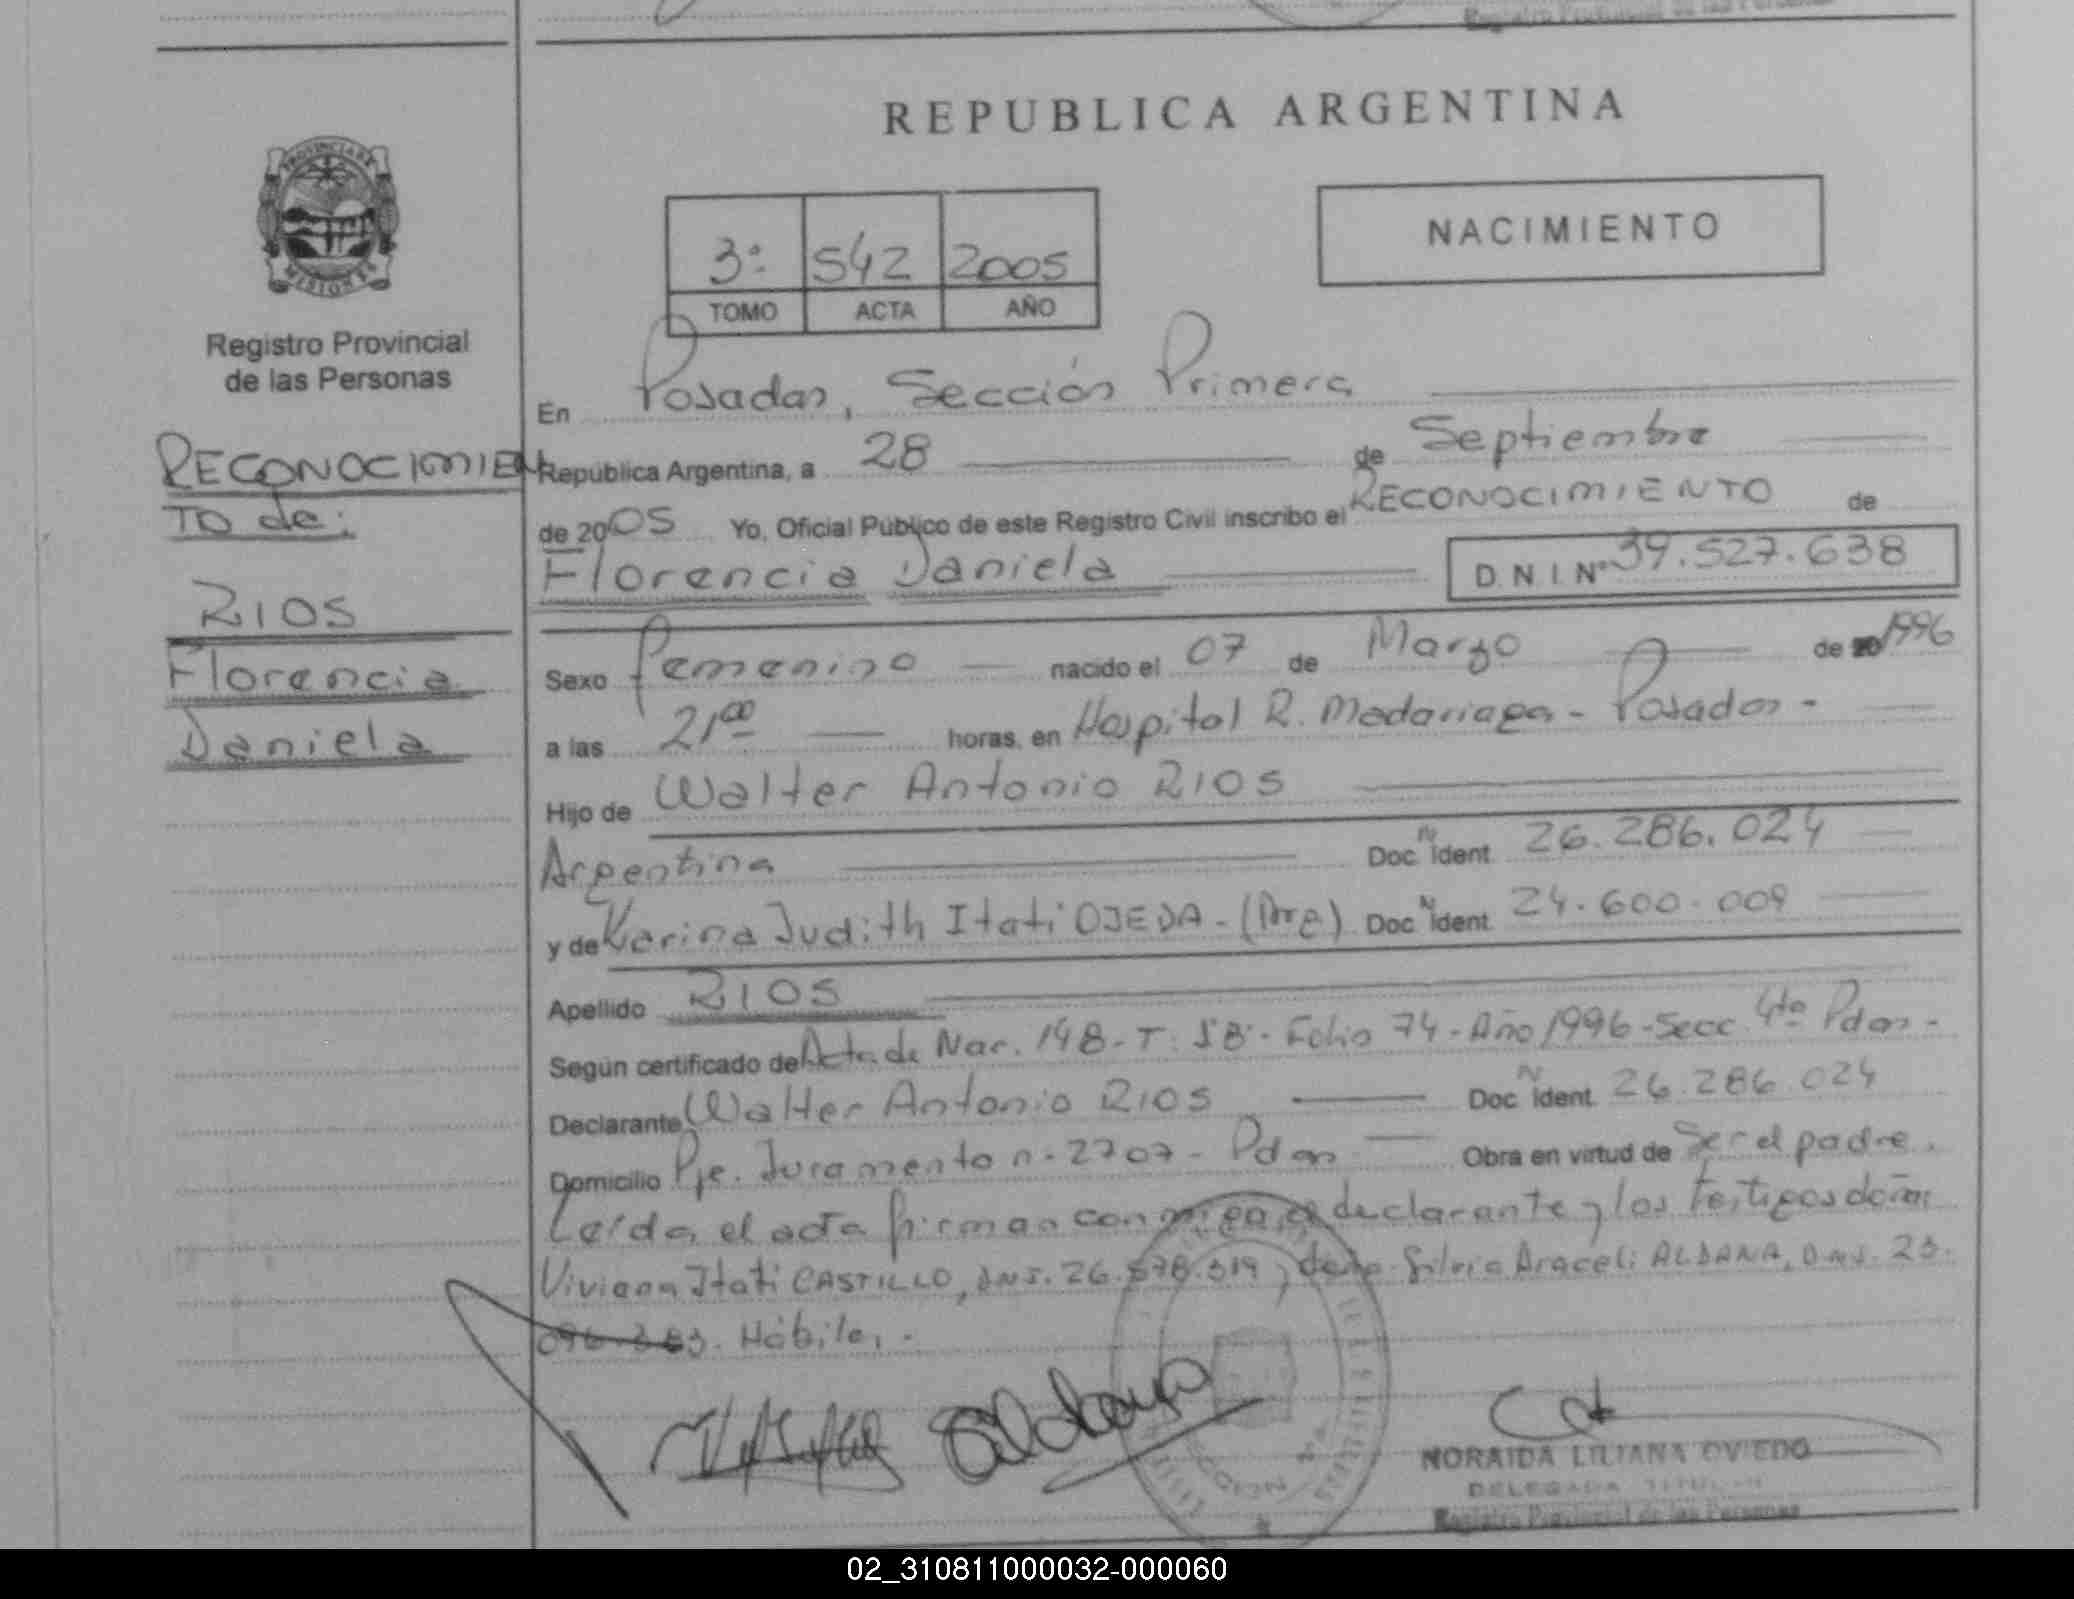 REPUBLICA ARGENTINA
PROVINCIA DE
MISIONES
Registro Provincial
de las Personas
3º 542 2005
TOMO ACTA AÑO
NACIMIENTO
RECONOCIMIEN
TO de:
RIOS
Florencia
Daniela
En Posadas, Sección Primera
República Argentina, a 28 de Septiembre
de 2005 Yo, Oficial Público de este Registro Civil inscribo el RECONOCIMIENTO de
Florencia Daniela D.N.I. Nº 39.527.638
Sexo femenino nacido el 07 de Marzo de 1996
a las 21 00 horas, en Hospital R. Madariaga - Posadas -
Hijo de Walter Antonio RIOS
Argentina Doc. N Ident. 26.286.024
y de Karina Judith Itati OJEDA - (Arg) Doc. N Ident. 24.600.009
Apellido RIOS
Según certificado de Acta de Nac. 148 - T: 5B - Folio 74 - Año 1996 - Secc 4ta Pdas -
Declarante Walter Antonio RIOS Doc. N Ident. 26.286.024
Domicilio Pje. Juramento n- 2707 - Pdas Obra en virtud de Ser el padre.
Leída el acta firman conmigo el declarante y los testigos doña
Viviana Itati CASTILLO, DNI. 26.578.319, doña Silvia Araceli ALDANA, DNI. 23.
Hábiles.-
NORAIDA LILIANA OVIEDO
DELEGADA TITULAR
Registro Provincial de las Personas
02_310811000032-000060